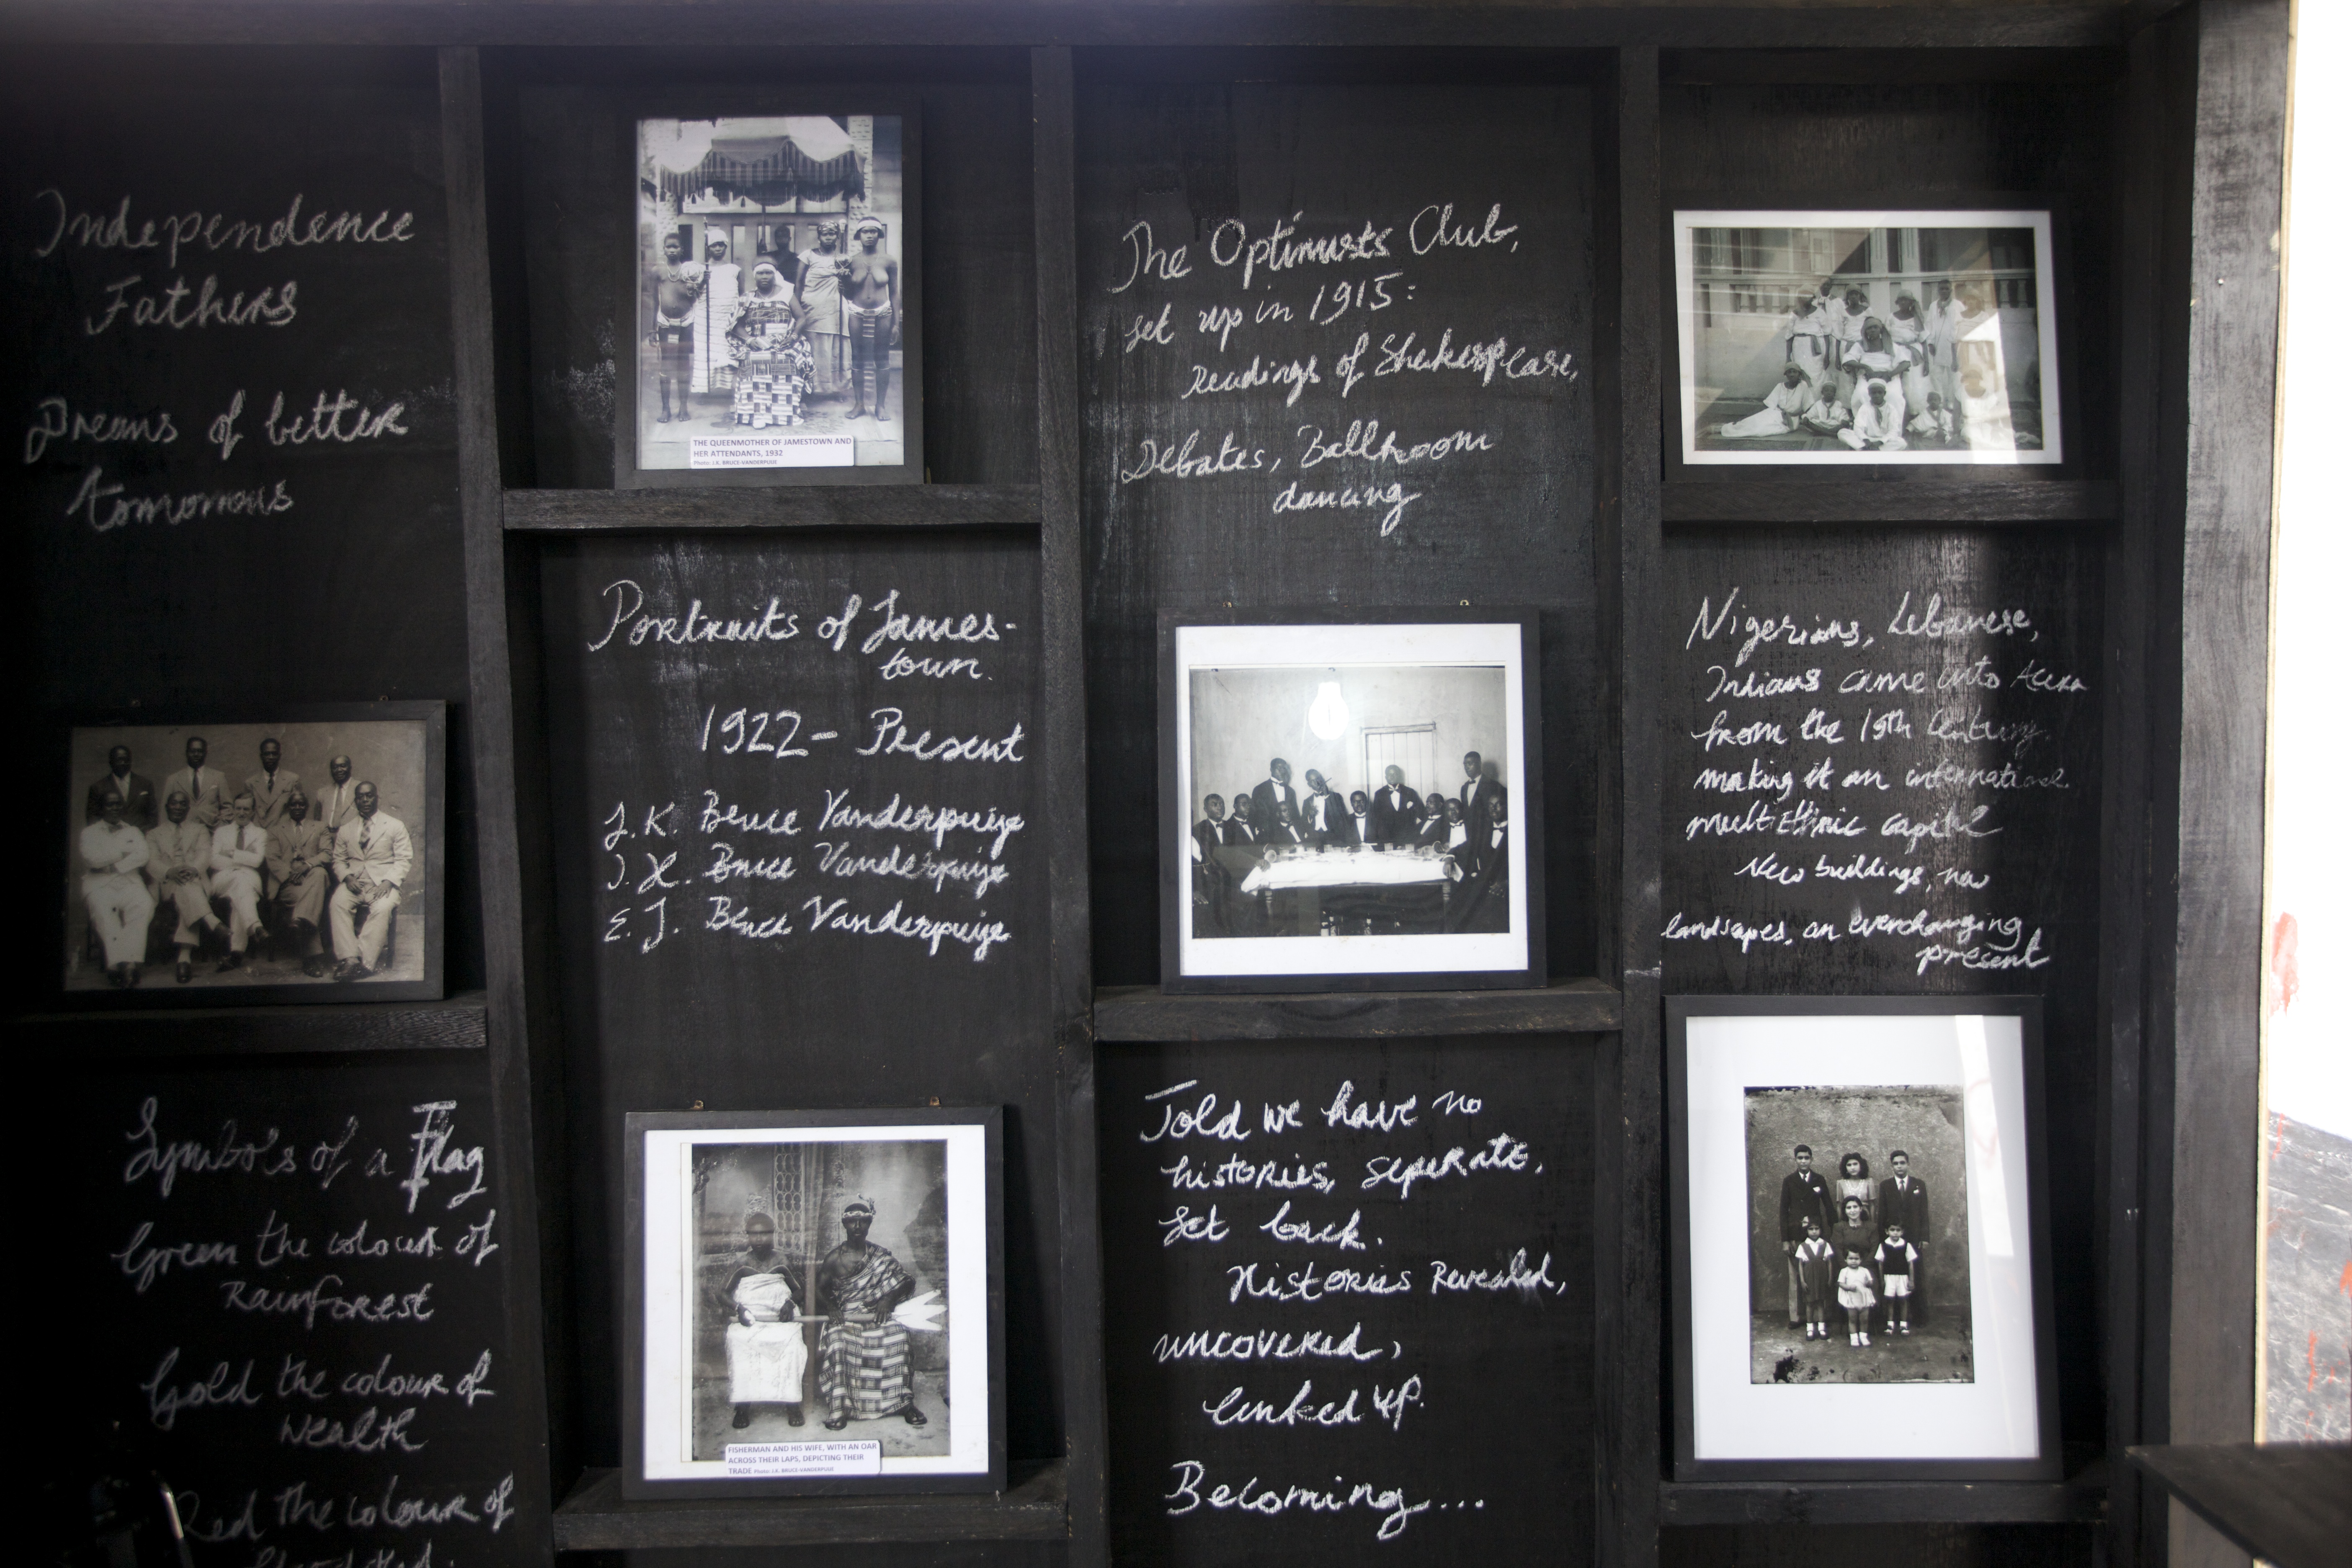 Independence
Fathers
Dreams of better
tomorrows
Symbols of a Flag
Green the colour of
Rainforest
Gold the colour of
Wealth
Red the colour of
THE QUEENMOTHER OF JAMESTOWN AND
HER ATTENDANTS, 1932
Photo: J.K. BRUCE-VANDERPUIJE
Portraits of James-
town.
1922- Present
J.K. Bruce Vanderpuije
I.H. Bruce Vanderpuije
E.J. Bruce Vanderpuije
FISHERMAN AND HIS WIFE, WITH AN OAR
ACROSS THEIR LAPS, DEPICTING THEIR
TRADE Photo: J.K. BRUCE-VANDERPUIJE
The Optimists Club,
set up in 1915:
Readings of Shakespeare,
Debates, Ballroom
dancing
Told we have no
histories, seperate,
set back.
Histories Revealed,
uncovered,
linked up.
Becoming...
Nigerians, Lebanese,
Indians came into Accra
from the 19th Century
making it an international
multi Ethnic capital
New buildings, new
landscapes, an everchanging
present